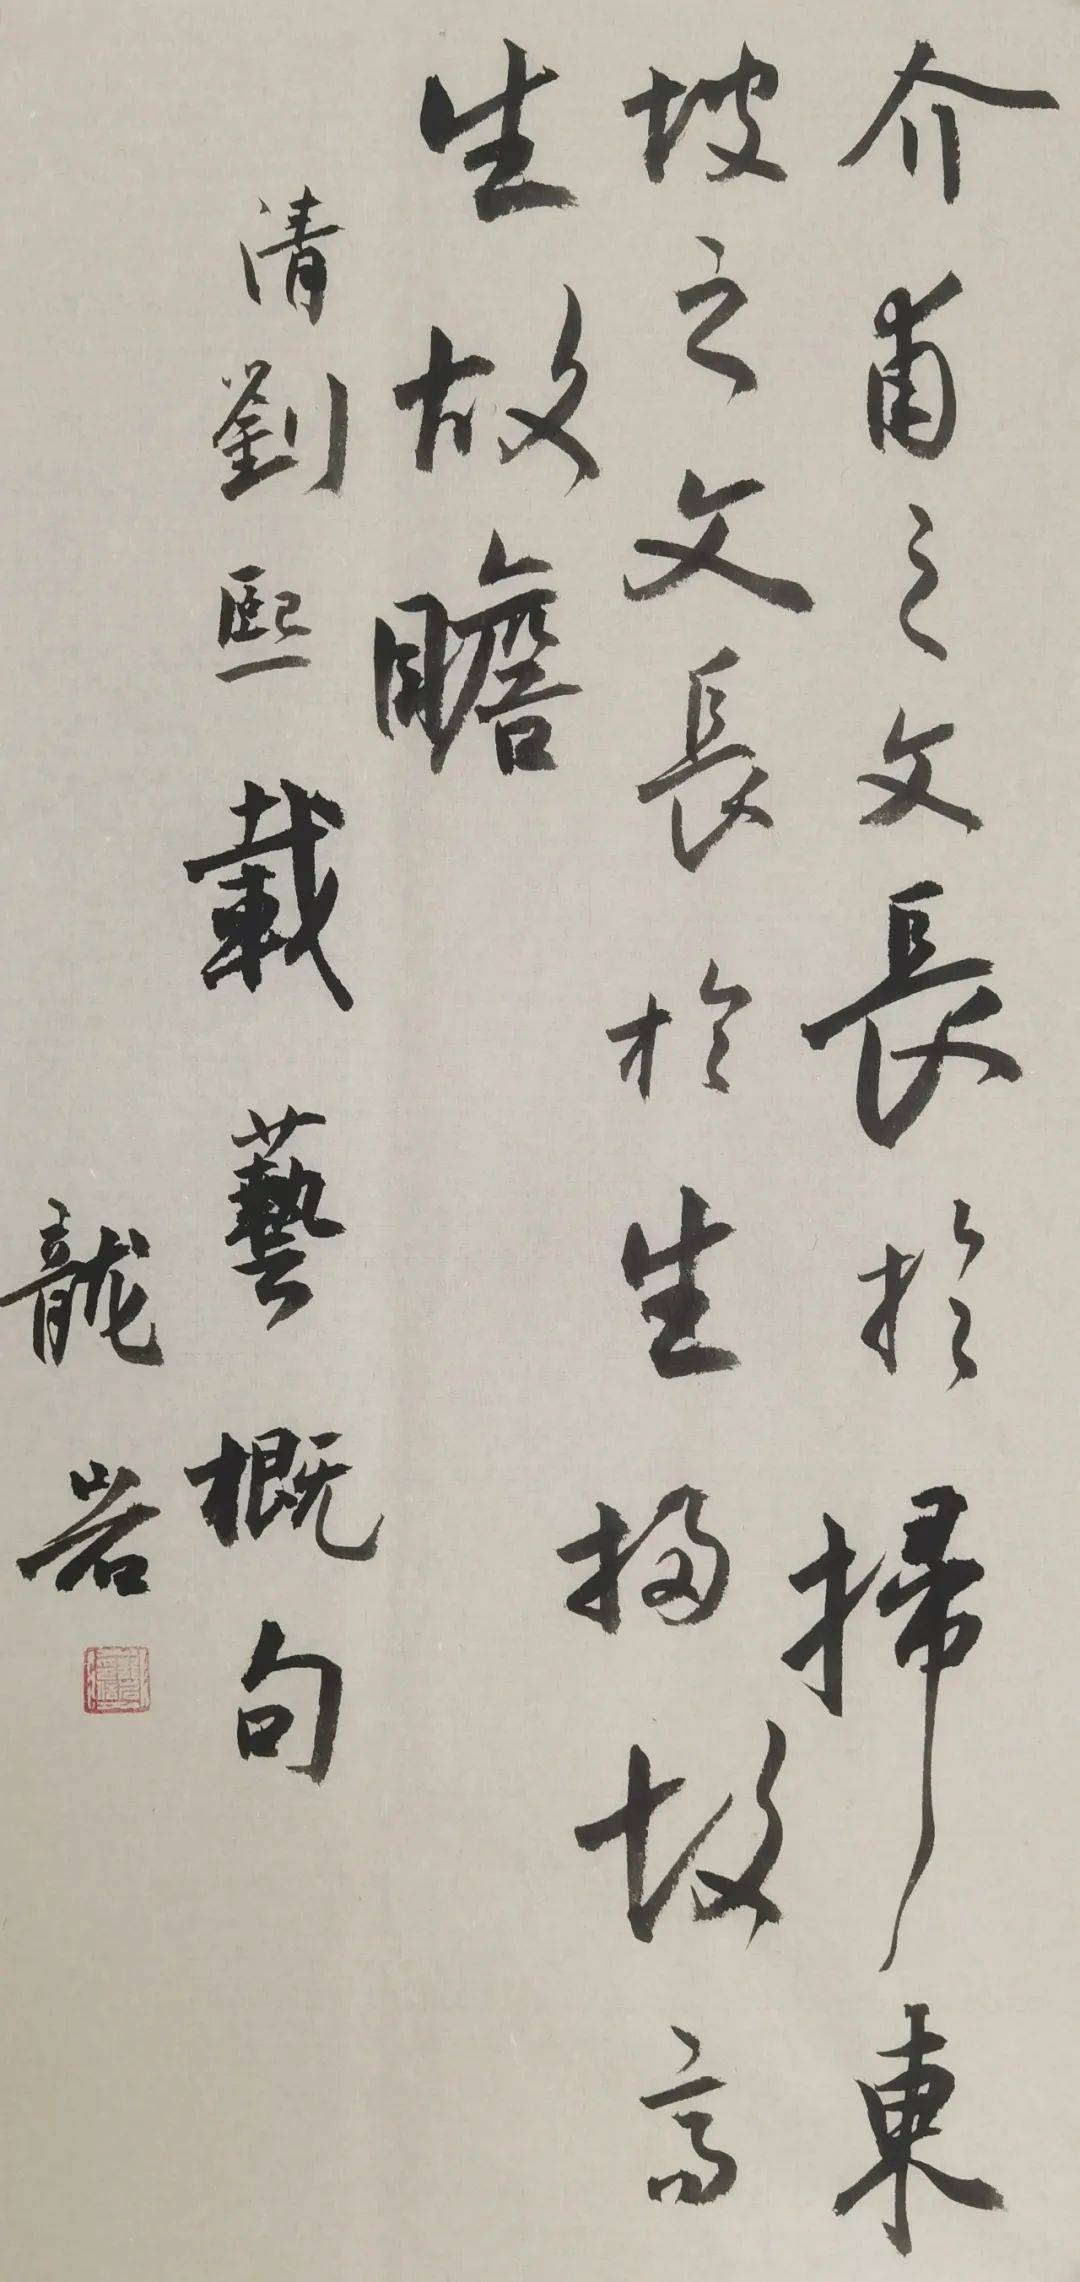 介甫之文長於掃東
坡之文長於生掃故高
生故瞻
清劉熙載藝概句
龍岩